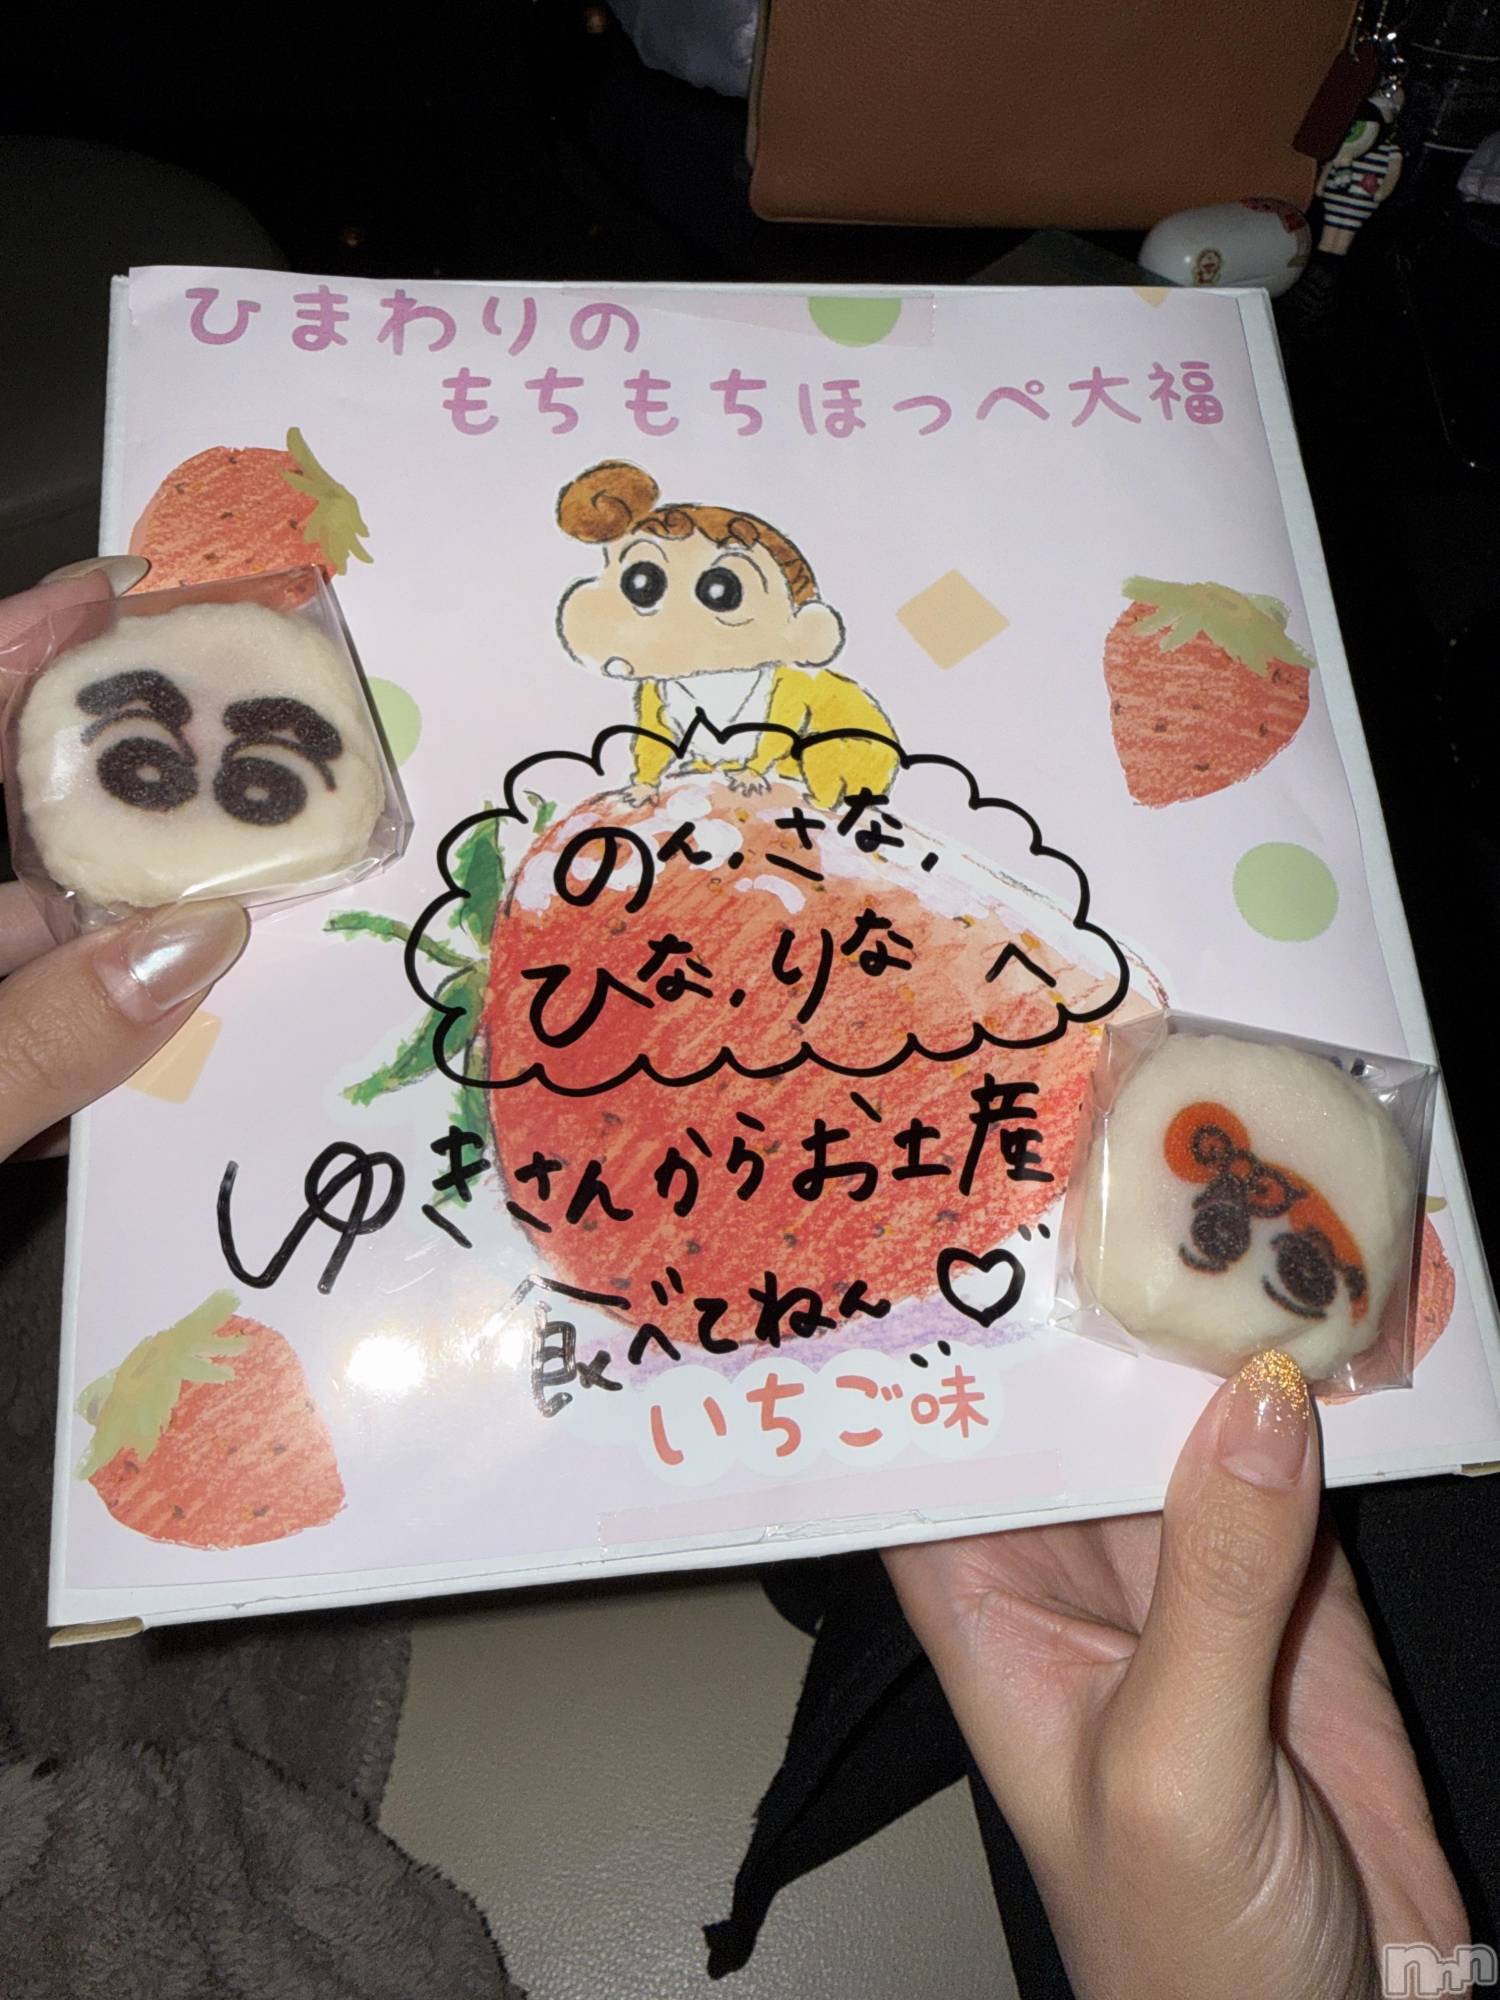 ひまわりの
もちもちほっぺ大福
のん、さな、
ひな、りな へ
ゆきさんからお土産
食べてねん♡
いちご味